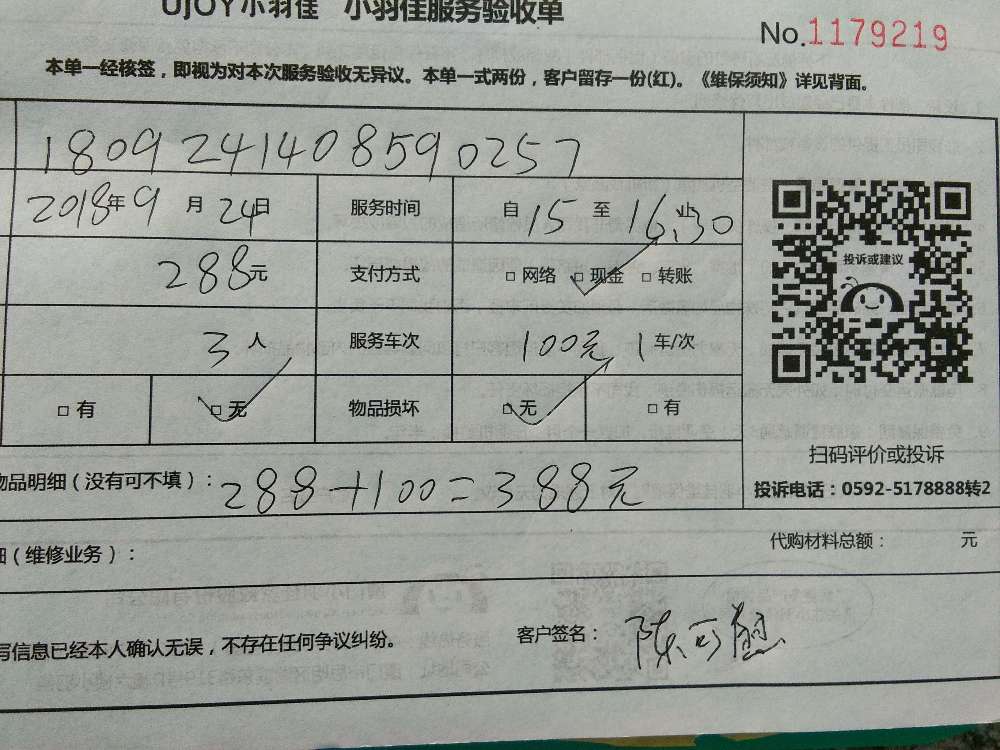 UJOY小羽佳 小羽佳服务验收单
No.1179219
本单一经核签，即视为对本次服务验收无异议。本单一式两份，客户留存一份(红)。《维保须知》详见背面。
180924140859 0257
2018年9月24日 服务时间 自15至16:30止
288元 支付方式 □网络 □现金 □转账
投诉或建议
3人 服务车次 100元 1车/次
□有 □无 物品损坏 □无 □有
扫码评价或投诉
物品明细（没有可不填）：288+100=388元
投诉电话：0592-5178888转2
细（维修业务）： 代购材料总额： 元
写信息已经本人确认无误，不存在任何争议纠纷。 客户签名：陈可